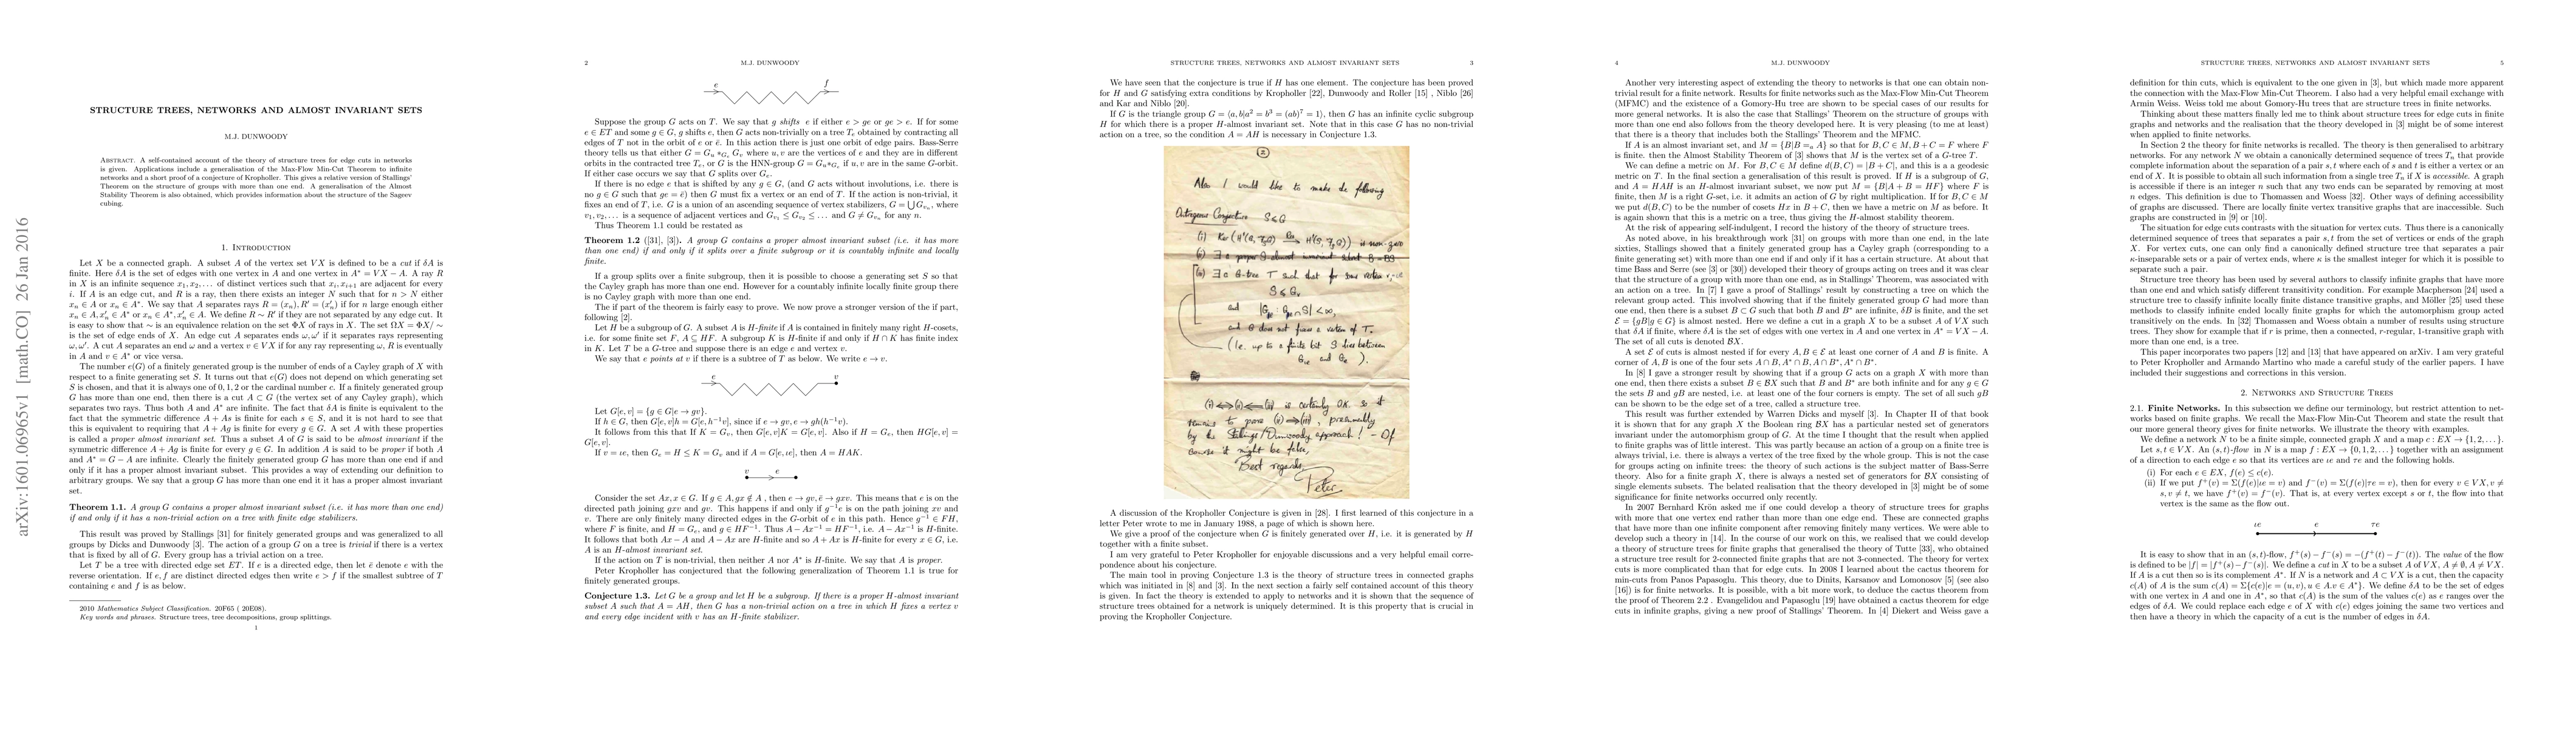 arXiv:1601.06965v1 [math.CO] 26 Jan 2016
STRUCTURE TREES, NETWORKS AND ALMOST INVARIANT SETS
M.J. DUNWOODY
Abstract. A self-contained account of the theory of structure trees for edge cuts in networks
is given. Applications include a generalisation of the Max-Flow Min-Cut Theorem to infinite
networks and a short proof of a conjecture of Kropholler. This gives a relative version of Stallings'
Theorem on the structure of groups with more than one end. A generalisation of the Almost
Stability Theorem is also obtained, which provides information about the structure of the Sageev
cubing.
1. Introduction
Let X be a connected graph. A subset A of the vertex set VX is defined to be a cut if δA is
finite. Here δA is the set of edges with one vertex in A and one vertex in A* = VX − A. A ray R
in X is an infinite sequence x₁, x₂, . . . of distinct vertices such that xᵢ, xᵢ₊₁ are adjacent for every
i. If A is an edge cut, and R is a ray, then there exists an integer N such that for n > N either
xₙ ∈ A or xₙ ∈ A*. We say that A separates rays R = (xₙ), R′ = (x′ₙ) if for n large enough either
xₙ ∈ A, x′ₙ ∈ A* or xₙ ∈ A*, x′ₙ ∈ A. We define R ∼ R′ if they are not separated by any edge cut. It
is easy to show that ∼ is an equivalence relation on the set ΦX of rays in X. The set ΩX = ΦX/ ∼
is the set of edge ends of X. An edge cut A separates ends ω, ω′ if it separates rays representing
ω, ω′. A cut A separates an end ω and a vertex v ∈ VX if for any ray representing ω, R is eventually
in A and v ∈ A* or vice versa.
The number e(G) of a finitely generated group is the number of ends of a Cayley graph of X with
respect to a finite generating set S. It turns out that e(G) does not depend on which generating set
S is chosen, and that it is always one of 0, 1, 2 or the cardinal number c. If a finitely generated group
G has more than one end, then there is a cut A ⊂ G (the vertex set of any Cayley graph), which
separates two rays. Thus both A and A* are infinite. The fact that δA is finite is equivalent to the
fact that the symmetric difference A + As is finite for each s ∈ S, and it is not hard to see that
this is equivalent to requiring that A + Ag is finite for every g ∈ G. A set A with these properties
is called a proper almost invariant set. Thus a subset A of G is said to be almost invariant if the
symmetric difference A + Ag is finite for every g ∈ G. In addition A is said to be proper if both A
and A* = G − A are infinite. Clearly the finitely generated group G has more than one end if and
only if it has a proper almost invariant subset. This provides a way of extending our definition to
arbitrary groups. We say that a group G has more than one end it it has a proper almost invariant
set.
Theorem 1.1. A group G contains a proper almost invariant subset (i.e. it has more than one end)
if and only if it has a non-trivial action on a tree with finite edge stabilizers.
This result was proved by Stallings [31] for finitely generated groups and was generalized to all
groups by Dicks and Dunwoody [3]. The action of a group G on a tree is trivial if there is a vertex
that is fixed by all of G. Every group has a trivial action on a tree.
Let T be a tree with directed edge set ET. If e is a directed edge, then let ē denote e with the
reverse orientation. If e, f are distinct directed edges then write e > f if the smallest subtree of T
containing e and f is as below.
2010 Mathematics Subject Classification. 20F65 ( 20E08).
Key words and phrases. Structure trees, tree decompositions, group splittings.
1
2 M.J. DUNWOODY
e f
Suppose the group G acts on T. We say that g shifts e if either e > ge or ge > e. If for some
e ∈ ET and some g ∈ G, g shifts e, then G acts non-trivially on a tree Tₑ obtained by contracting all
edges of T not in the orbit of e or ē. In this action there is just one orbit of edge pairs. Bass-Serre
theory tells us that either G = Gᵤ *_Gₑ Gᵥ where u, v are the vertices of e and they are in different
orbits in the contracted tree Tₑ, or G is the HNN-group G = Gᵤ*_Gₑ if u, v are in the same G-orbit.
If either case occurs we say that G splits over Gₑ.
If there is no edge e that is shifted by any g ∈ G, (and G acts without involutions, i.e. there is
no g ∈ G such that ge = ē) then G must fix a vertex or an end of T. If the action is non-trivial, it
fixes an end of T, i.e. G is a union of an ascending sequence of vertex stabilizers, G = ⋃ G_vₙ, where
v₁, v₂, . . . is a sequence of adjacent vertices and G_v₁ ≤ G_v₂ ≤ . . . and G ≠ G_vₙ for any n.
Thus Theorem 1.1 could be restated as
Theorem 1.2 ([31], [3]). A group G contains a proper almost invariant subset (i.e. it has more
than one end) if and only if it splits over a finite subgroup or it is countably infinite and locally
finite.
If a group splits over a finite subgroup, then it is possible to choose a generating set S so that
the Cayley graph has more than one end. However for a countably infinite locally finite group there
is no Cayley graph with more than one end.
The if part of the theorem is fairly easy to prove. We now prove a stronger version of the if part,
following [2].
Let H be a subgroup of G. A subset A is H-finite if A is contained in finitely many right H-cosets,
i.e. for some finite set F, A ⊆ HF. A subgroup K is H-finite if and only if H ∩ K has finite index
in K. Let T be a G-tree and suppose there is an edge e and vertex v.
We say that e points at v if there is a subtree of T as below. We write e → v.
e v
Let G[e, v] = {g ∈ G|e → gv}.
If h ∈ G, then G[e, v]h = G[e, h⁻¹v], since if e → gv, e → gh(h⁻¹v).
It follows from this that If K = Gᵥ, then G[e, v]K = G[e, v]. Also if H = Gₑ, then HG[e, v] =
G[e, v].
If v = ιe, then Gₑ = H ≤ K = Gᵥ and if A = G[e, ιe], then A = HAK.
v e
Consider the set Ax, x ∈ G. If g ∈ A, gx ∉ A , then e → gv, ē → gxv. This means that e is on the
directed path joining gxv and gv. This happens if and only if g⁻¹e is on the path joining xv and
v. There are only finitely many directed edges in the G-orbit of e in this path. Hence g⁻¹ ∈ FH,
where F is finite, and H = Gₑ, and g ∈ HF⁻¹. Thus A − Ax⁻¹ = HF⁻¹, i.e. A − Ax⁻¹ is H-finite.
It follows that both Ax − A and A − Ax are H-finite and so A + Ax is H-finite for every x ∈ G, i.e.
A is an H-almost invariant set.
If the action on T is non-trivial, then neither A nor A* is H-finite. We say that A is proper.
Peter Kropholler has conjectured that the following generalization of Theorem 1.1 is true for
finitely generated groups.
Conjecture 1.3. Let G be a group and let H be a subgroup. If there is a proper H-almost invariant
subset A such that A = AH, then G has a non-trivial action on a tree in which H fixes a vertex v
and every edge incident with v has an H-finite stabilizer.
STRUCTURE TREES, NETWORKS AND ALMOST INVARIANT SETS 3
We have seen that the conjecture is true if H has one element. The conjecture has been proved
for H and G satisfying extra conditions by Kropholler [22], Dunwoody and Roller [15] , Niblo [26]
and Kar and Niblo [20].
If G is the triangle group G = ⟨a, b|a² = b³ = (ab)⁷ = 1⟩, then G has an infinite cyclic subgroup
H for which there is a proper H-almost invariant set. Note that in this case G has no non-trivial
action on a tree, so the condition A = AH is necessary in Conjecture 1.3.
②
Also I would like to make the following
Outrageous Conjecture S ≤ G
(i) Ker (H¹(G, ) Res → H¹(S, )) is non-zero
(ii) ∃ a proper S-almost invariant subset B = BS
(iii) ∃ a G-tree T such that for some vertex v,
S ≤ Gᵥ
and |Gₑ : Gₑ∩S| < ∞,
and G does not fix a vertex of T.
(I.e. up to a finite bit S lies between
Gₑ and Gᵥ).
(i) ⟺ (ii) ⟸ (iii) is certainly OK. so it
remains to prove (ii) ⟹ (iii), presumably
by the Stallings/Dunwoody approach! – Of
course it might be false.
Best regards
Peter
A discussion of the Kropholler Conjecture is given in [28]. I first learned of this conjecture in a
letter Peter wrote to me in January 1988, a page of which is shown here.
We give a proof of the conjecture when G is finitely generated over H, i.e. it is generated by H
together with a finite subset.
I am very grateful to Peter Kropholler for enjoyable discussions and a very helpful email corre-
pondence about his conjecture.
The main tool in proving Conjecture 1.3 is the theory of structure trees in connected graphs
which was initiated in [8] and [3]. In the next section a fairly self contained account of this theory
is given. In fact the theory is extended to apply to networks and it is shown that the sequence of
structure trees obtained for a network is uniquely determined. It is this property that is crucial in
proving the Kropholler Conjecture.
4 M.J. DUNWOODY
Another very interesting aspect of extending the theory to networks is that one can obtain non-
trivial result for a finite network. Results for finite networks such as the Max-Flow Min-Cut Theorem
(MFMC) and the existence of a Gomory-Hu tree are shown to be special cases of our results for
more general networks. It is also the case that Stallings' Theorem on the structure of groups with
more than one end also follows from the theory developed here. It is very pleasing (to me at least)
that there is a theory that includes both the Stallings' Theorem and the MFMC.
If A is an almost invariant set, and M = {B|B =ₐ A} so that for B, C ∈ M, B + C = F where F
is finite. then the Almost Stability Theorem of [3] shows that M is the vertex set of a G-tree T.
We can define a metric on M. For B, C ∈ M define d(B, C) = |B + C|, and this is a geodesic
metric on T. In the final section a generalisation of this result is proved. If H is a subgroup of G,
and A = HAH is an H-almost invariant subset, we now put M = {B|A + B = HF} where F is
finite, then M is a right G-set, i.e. it admits an action of G by right multiplication. If for B, C ∈ M
we put d(B, C) to be the number of cosets Hx in B + C, then we have a metric on M as before. It
is again shown that this is a metric on a tree, thus giving the H-almost stability theorem.
At the risk of appearing self-indulgent, I record the history of the theory of structure trees.
As noted above, in his breakthrough work [31] on groups with more than one end, in the late
sixties, Stallings showed that a finitely generated group has a Cayley graph (corresponding to a
finite generating set) with more than one end if and only if it has a certain structure. At about that
time Bass and Serre (see [3] or [30]) developed their theory of groups acting on trees and it was clear
that the structure of a group with more than one end, as in Stallings' Theorem, was associated with
an action on a tree. In [7] I gave a proof of Stallings' result by constructing a tree on which the
relevant group acted. This involved showing that if the finitely generated group G had more than
one end, then there is a subset B ⊂ G such that both B and B* are infinite, δB is finite, and the set
ℰ = {gB|g ∈ G} is almost nested. Here we define a cut in a graph X to be a subset A of VX such
that δA if finite, where δA is the set of edges with one vertex in A and one vertex in A* = VX − A.
The set of all cuts is denoted ℬX.
A set ℰ of cuts is almost nested if for every A, B ∈ ℰ at least one corner of A and B is finite. A
corner of A, B is one of the four sets A ∩ B, A* ∩ B, A ∩ B*, A* ∩ B*.
In [8] I gave a stronger result by showing that if a group G acts on a graph X with more than
one end, then there exists a subset B ∈ ℬX such that B and B* are both infinite and for any g ∈ G
the sets B and gB are nested, i.e. at least one of the four corners is empty. The set of all such gB
can be shown to be the edge set of a tree, called a structure tree.
This result was further extended by Warren Dicks and myself [3]. In Chapter II of that book
it is shown that for any graph X the Boolean ring ℬX has a particular nested set of generators
invariant under the automorphism group of G. At the time I thought that the result when applied
to finite graphs was of little interest. This was partly because an action of a group on a finite tree is
always trivial, i.e. there is always a vertex of the tree fixed by the whole group. This is not the case
for groups acting on infinite trees: the theory of such actions is the subject matter of Bass-Serre
theory. Also for a finite graph X, there is always a nested set of generators for ℬX consisting of
single elements subsets. The belated realisation that the theory developed in [3] might be of some
significance for finite networks occurred only recently.
In 2007 Bernhard Krön asked me if one could develop a theory of structure trees for graphs
with more that one vertex end rather than more than one edge end. These are connected graphs
that have more than one infinite component after removing finitely many vertices. We were able to
develop such a theory in [14]. In the course of our work on this, we realised that we could develop
a theory of structure trees for finite graphs that generalised the theory of Tutte [33], who obtained
a structure tree result for 2-connected finite graphs that are not 3-connected. The theory for vertex
cuts is more complicated than that for edge cuts. In 2008 I learned about the cactus theorem for
min-cuts from Panos Papasoglu. This theory, due to Dinits, Karsanov and Lomonosov [5] (see also
[16]) is for finite networks. It is possible, with a bit more work, to deduce the cactus theorem from
the proof of Theorem 2.2 . Evangelidou and Papasoglu [19] have obtained a cactus theorem for edge
cuts in infinite graphs, giving a new proof of Stallings' Theorem. In [4] Diekert and Weiss gave a
STRUCTURE TREES, NETWORKS AND ALMOST INVARIANT SETS 5
definition for thin cuts, which is equivalent to the one given in [3], but which made more apparent
the connection with the Max-Flow Min-Cut Theorem. I also had a very helpful email exchange with
Armin Weiss. Weiss told me about Gomory-Hu trees that are structure trees in finite networks.
Thinking about these matters finally led me to think about structure trees for edge cuts in finite
graphs and networks and the realisation that the theory developed in [3] might be of some interest
when applied to finite networks.
In Section 2 the theory for finite networks is recalled. The theory is then generalised to arbitrary
networks. For any network N we obtain a canonically determined sequence of trees Tₙ that provide
complete information about the separation of a pair s, t where each of s and t is either a vertex or an
end of X. It is possible to obtain all such information from a single tree Tₙ if X is accessible. A graph
is accessible if there is an integer n such that any two ends can be separated by removing at most
n edges. This definition is due to Thomassen and Woess [32]. Other ways of defining accessibility
of graphs are discussed. There are locally finite vertex transitive graphs that are inaccessible. Such
graphs are constructed in [9] or [10].
The situation for edge cuts contrasts with the situation for vertex cuts. Thus there is a canonically
determined sequence of trees that separates a pair s, t from the set of vertices or ends of the graph
X. For vertex cuts, one can only find a canonically defined structure tree that separates a pair
κ-inseparable sets or a pair of vertex ends, where κ is the smallest integer for which it is possible to
separate such a pair.
Structure tree theory has been used by several authors to classify infinite graphs that have more
than one end and which satisfy different transitivity condition. For example Macpherson [24] used a
structure tree to classify infinite locally finite distance transitive graphs, and Möller [25] used these
methods to classify infinite ended locally finite graphs for which the automorphism group acted
transitively on the ends. In [32] Thomassen and Woess obtain a number of results using structure
trees. They show for example that if r is prime, then a connected, r-regular, 1-transitive graph with
more than one end, is a tree.
This paper incorporates two papers [12] and [13] that have appeared on arXiv. I am very grateful
to Peter Kropholler and Armando Martino who made a careful study of the earlier papers. I have
included their suggestions and corrections in this version.
2. Networks and Structure Trees
2.1. Finite Networks. In this subsection we define our terminology, but restrict attention to net-
works based on finite graphs. We recall the Max-Flow Min-Cut Theorem and state the result that
our more general theory gives for finite networks. We illustrate the theory with examples.
We define a network N to be a finite simple, connected graph X and a map c : EX → {1, 2, . . . }.
Let s, t ∈ VX. An (s, t)-flow in N is a map f : EX → {0, 1, 2, . . . } together with an assignment
of a direction to each edge e so that its vertices are ιe and τe and the following holds.
(i) For each e ∈ EX, f(e) ≤ c(e).
(ii) If we put f⁺(v) = Σ(f(e)|ιe = v) and f⁻(v) = Σ(f(e)|τe = v), then for every v ∈ VX, v ≠
s, v ≠ t, we have f⁺(v) = f⁻(v). That is, at every vertex except s or t, the flow into that
vertex is the same as the flow out.
ιe e τe
It is easy to show that in an (s, t)-flow, f⁺(s) − f⁻(s) = −(f⁺(t) − f⁻(t)). The value of the flow
is defined to be |f| = |f⁺(s) − f⁻(s)|. We define a cut in X to be a subset A of VX, A ≠ ∅, A ≠ VX.
If A is a cut then so is its complement A*. If N is a network and A ⊂ VX is a cut, then the capacity
c(A) of A is the sum c(A) = Σ{c(e)|e = (u, v), u ∈ A, v ∈ A*}. We define δA to be the set of edges
with one vertex in A and one in A*, so that c(A) is the sum of the values c(e) as e ranges over the
edges of δA. We could replace each edge e of X with c(e) edges joining the same two vertices and
then have a theory in which the capacity of a cut is the number of edges in δA.